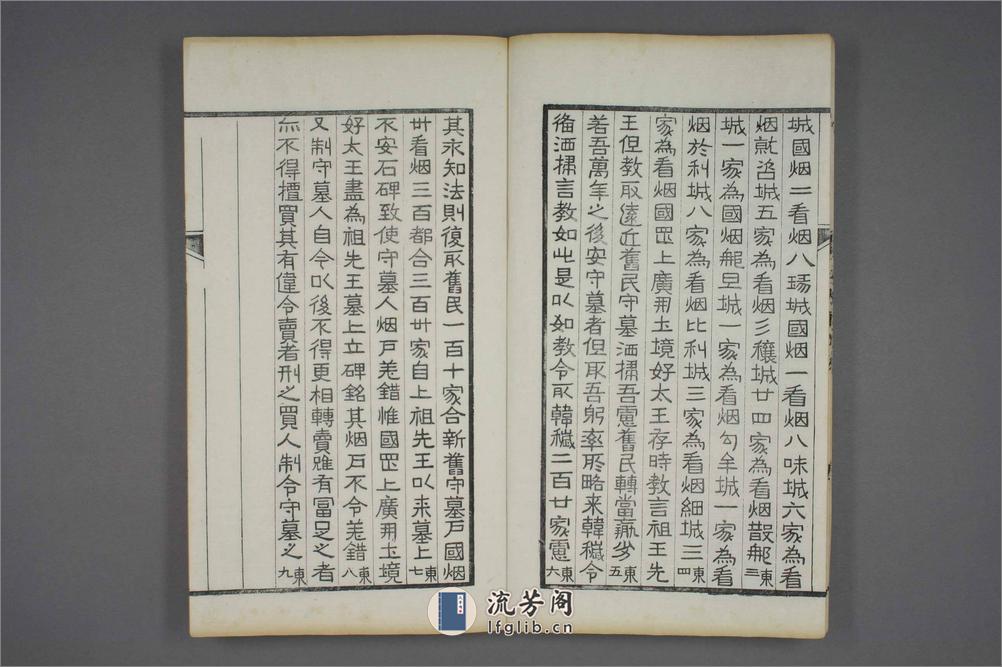 城國烟二看烟八瑑城國烟一看烟八味城六家為看
烟就咨城五家為看烟彡穰城廿四家為看烟散那東三
城一家為國烟那旦城一家為看烟勾牟城一家為看
烟於利城八家為看烟比利城三家為看烟細城三東四
家為看烟國罡上廣開土境好太王存時教言祖王先
王但教取遠近舊民守墓洒掃吾慮舊民轉當羸劣東五
若吾萬年之後安守墓者但取吾躬率所略来韓穢令
備洒掃言教如此是以如教令取韓穢二百廿家慮東六
其不知法則復取舊民一百十家合新舊守墓戶國烟
卅看烟三百都合三百卅家自上祖先王以来墓上東七
不安石碑致使守墓人烟戶羌錯惟國罡上廣開土境
好太王盡為祖先王墓上立碑銘其烟戶不令羌錯東八
又制守墓人自今以後不得更相轉賣雖有富足之者
亦不得擅買其有違令賣者刑之買人制令守墓之東九
流芳阁
lfglib.cn